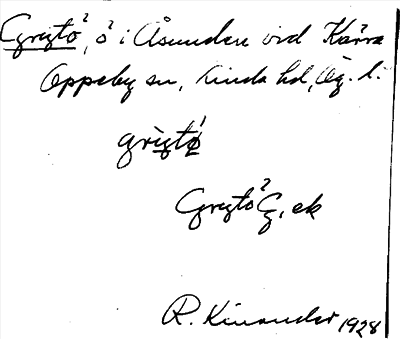 Grytö, ö i Åsunden vid Kärra
Oppeby sn, Kinda hd, Ög. l.
grỳtø
Grytö G, ek
R. Kinander 1928